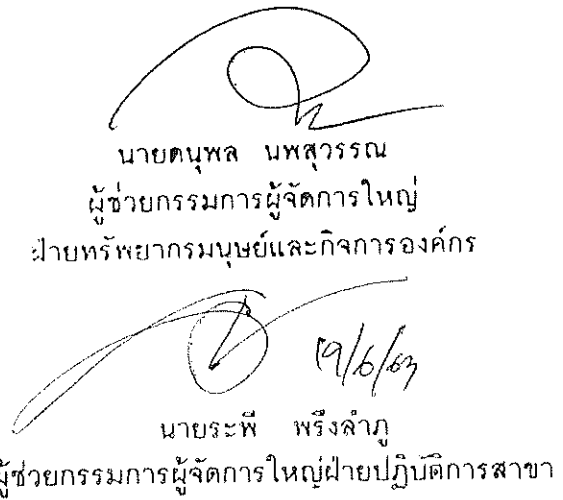 นายดนุพล นพสุวรรณ
ผู้ช่วยกรรมการผู้จัดการใหญ่
ฝ่ายทรัพยากรมนุษย์และกิจการองค์กร
19/6/63
นายระพี พรึงลำภู
ผู้ช่วยกรรมการผู้จัดการใหญ่ฝ่ายปฏิบัติการสาขา